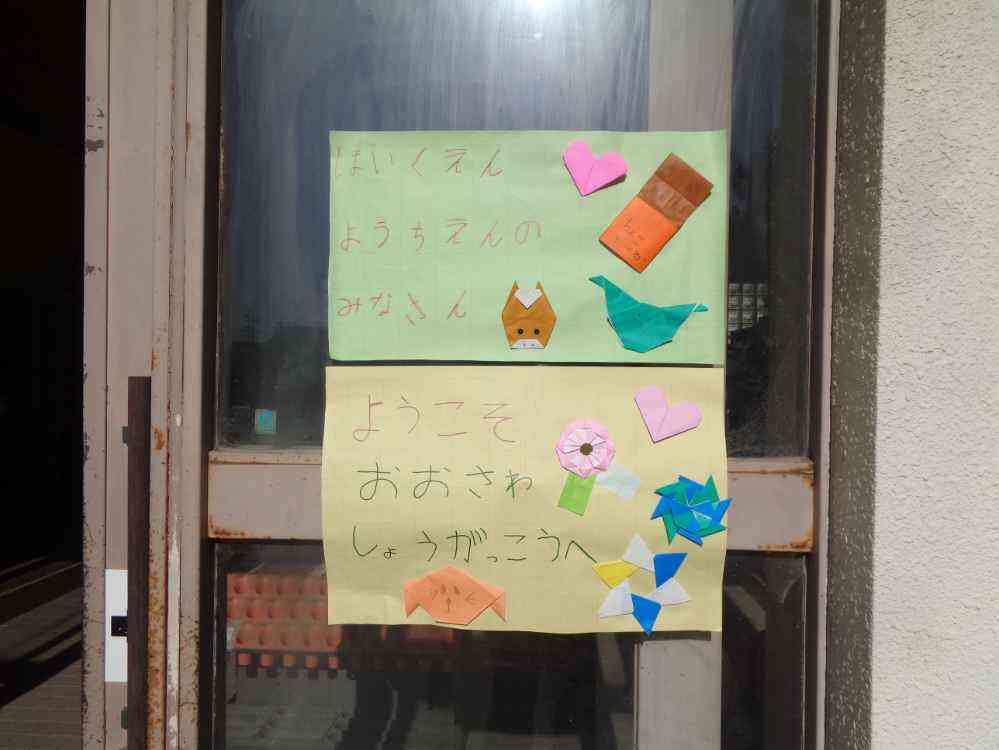 ほいくえん
ようちえんの
みなさん
ようこそ
おおさわ
しょうがっこうへ